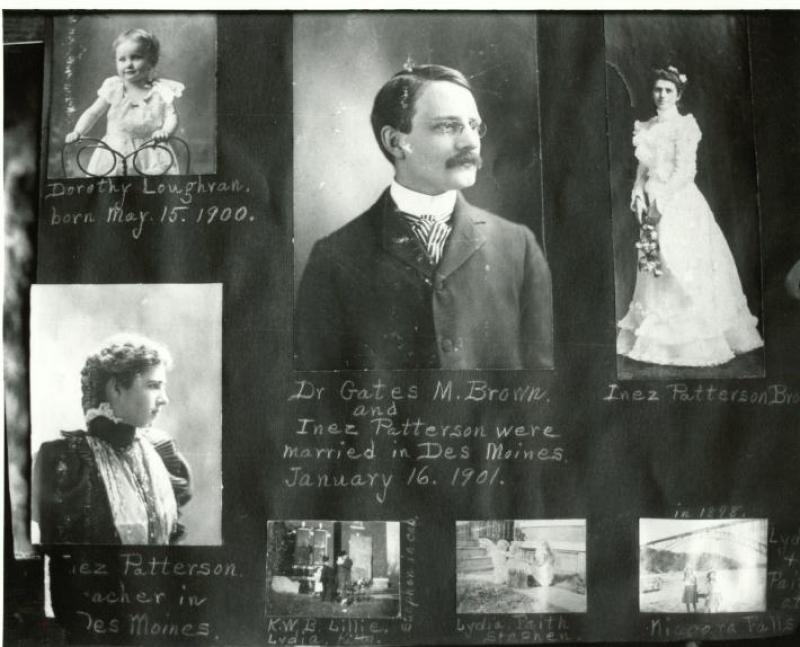 Dorothy Loughran.
born May. 15. 1900.
Dr Gates M. Brown.
and
Inez Patterson were
married in Des Moines.
January 16. 1901.
Inez Patterson Bro
iez Patterson.
acher in
Des Moines.
K.W.B. Lillie.
Lydia.
Lydia Faith
Stephen.
in 1898.
Lyd
Niagara Falls